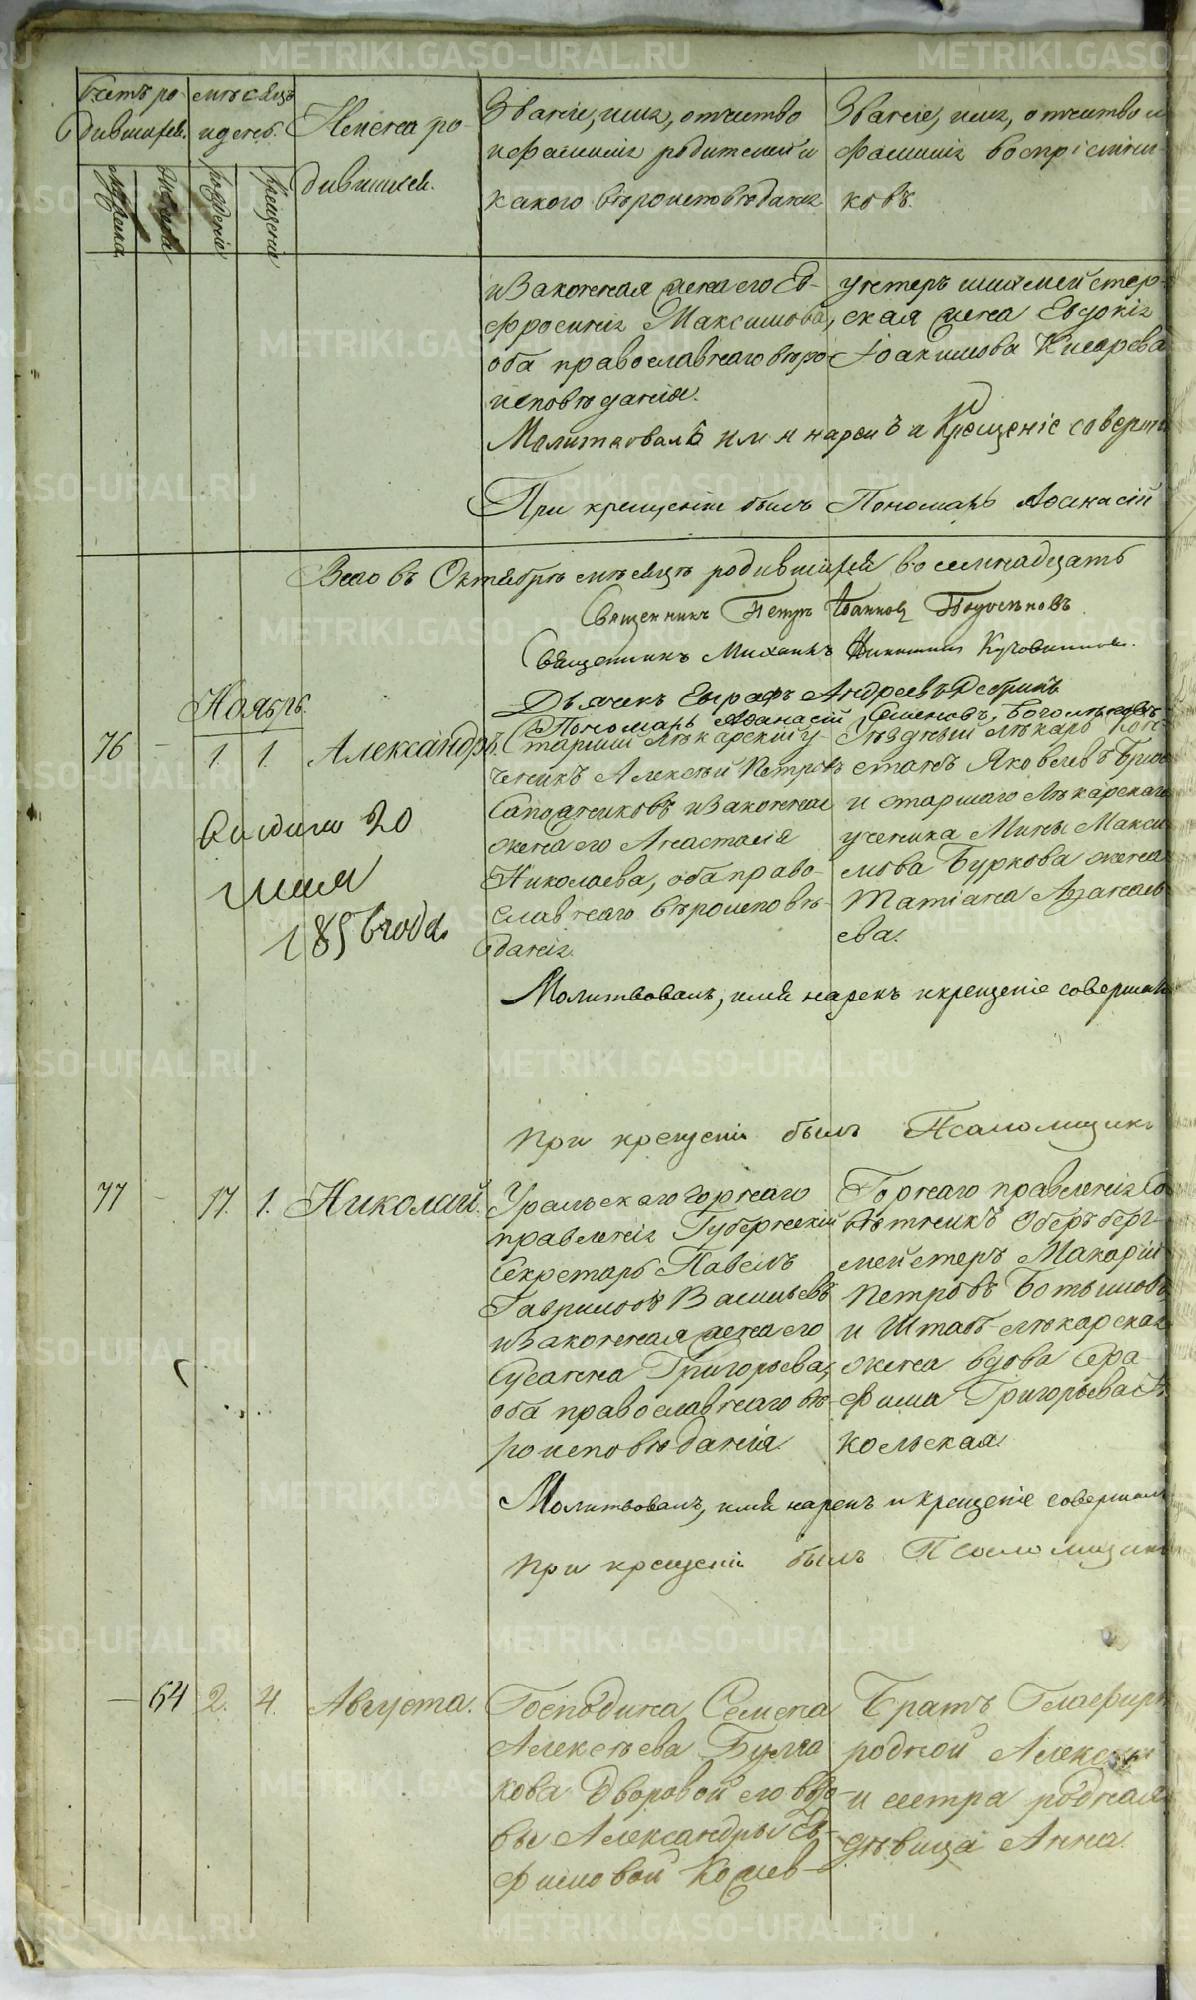 Счетъ ро-
дившихся.
мѣсяцъ
и день.
Имена ро-
дившихся.
Званіе, имя, отчество
и фамилія родителей и
какого вѣроисповѣданія
Званіе, имя, отчество и
фамилія воспріемни-
ковъ.
мужска
женска
рожденія
крещенія
и законная жена его Ев-
фросинія Максимова,
оба православнаго вѣро-
исповѣданія.
ская жена Евдокія
Іоакимова
Молитвовалъ имя нарекъ и крещеніе соверши
При крещеніи былъ Пономарь Аѳанасій
Всего въ Октябрѣ мѣсяцѣ родившихся восемнадцать
Священникъ Петръ Іоанновъ
Священникъ Михаилъ
Дьячекъ Евграфъ Андреевъ
Пономарь Аѳанасій Семеновъ
Ноябрь.
76 – 1. 1. Александръ.
Старшій лѣкарскій у-
ченикъ Алексѣй Петровъ
Сапожниковъ и законная
жена его Анастасія
Николаева, оба право-
славнаго вѣроисповѣ-
данія.
Уѣздный лѣкарь Кон-
стант. Яковлевъ
и старшаго лѣкарскаго
ученика Мины Макси-
мова Буркова жена
Татіана Аѳанасье
ева.
20
1856 года.
Молитвовалъ, имя нарекъ и крещеніе совершилъ
При крещеніи былъ Псаломщикъ
77 – 17. 1. Николай.
Уральскаго горнаго
правленія Губернскій
Секретарь Павелъ
Гавриловъ Васильевъ
и законная жена его
Сусанна Григорьева,
оба православнаго вѣ-
роисповѣданія.
Горнаго правленія Со
вѣтникъ Оберъ-берг-
мейстеръ Макарій
Петровъ
и Штабъ-лѣкарская
жена вдова Сера-
фима Григорьева Ни
кольская.
Молитвовалъ, имя нарекъ и крещеніе совершилъ
При крещеніи былъ Псаломщикъ
– 64 2. 4. Августа.
Господина Семена
Алексѣева Булга
кова дворовой его вдо-
вы Александры Ев-
фимовой
Братъ Глафиры
родной Алексѣй
и сестра родная
дѣвица Анна.
METRIKI.GASO-URAL.RU